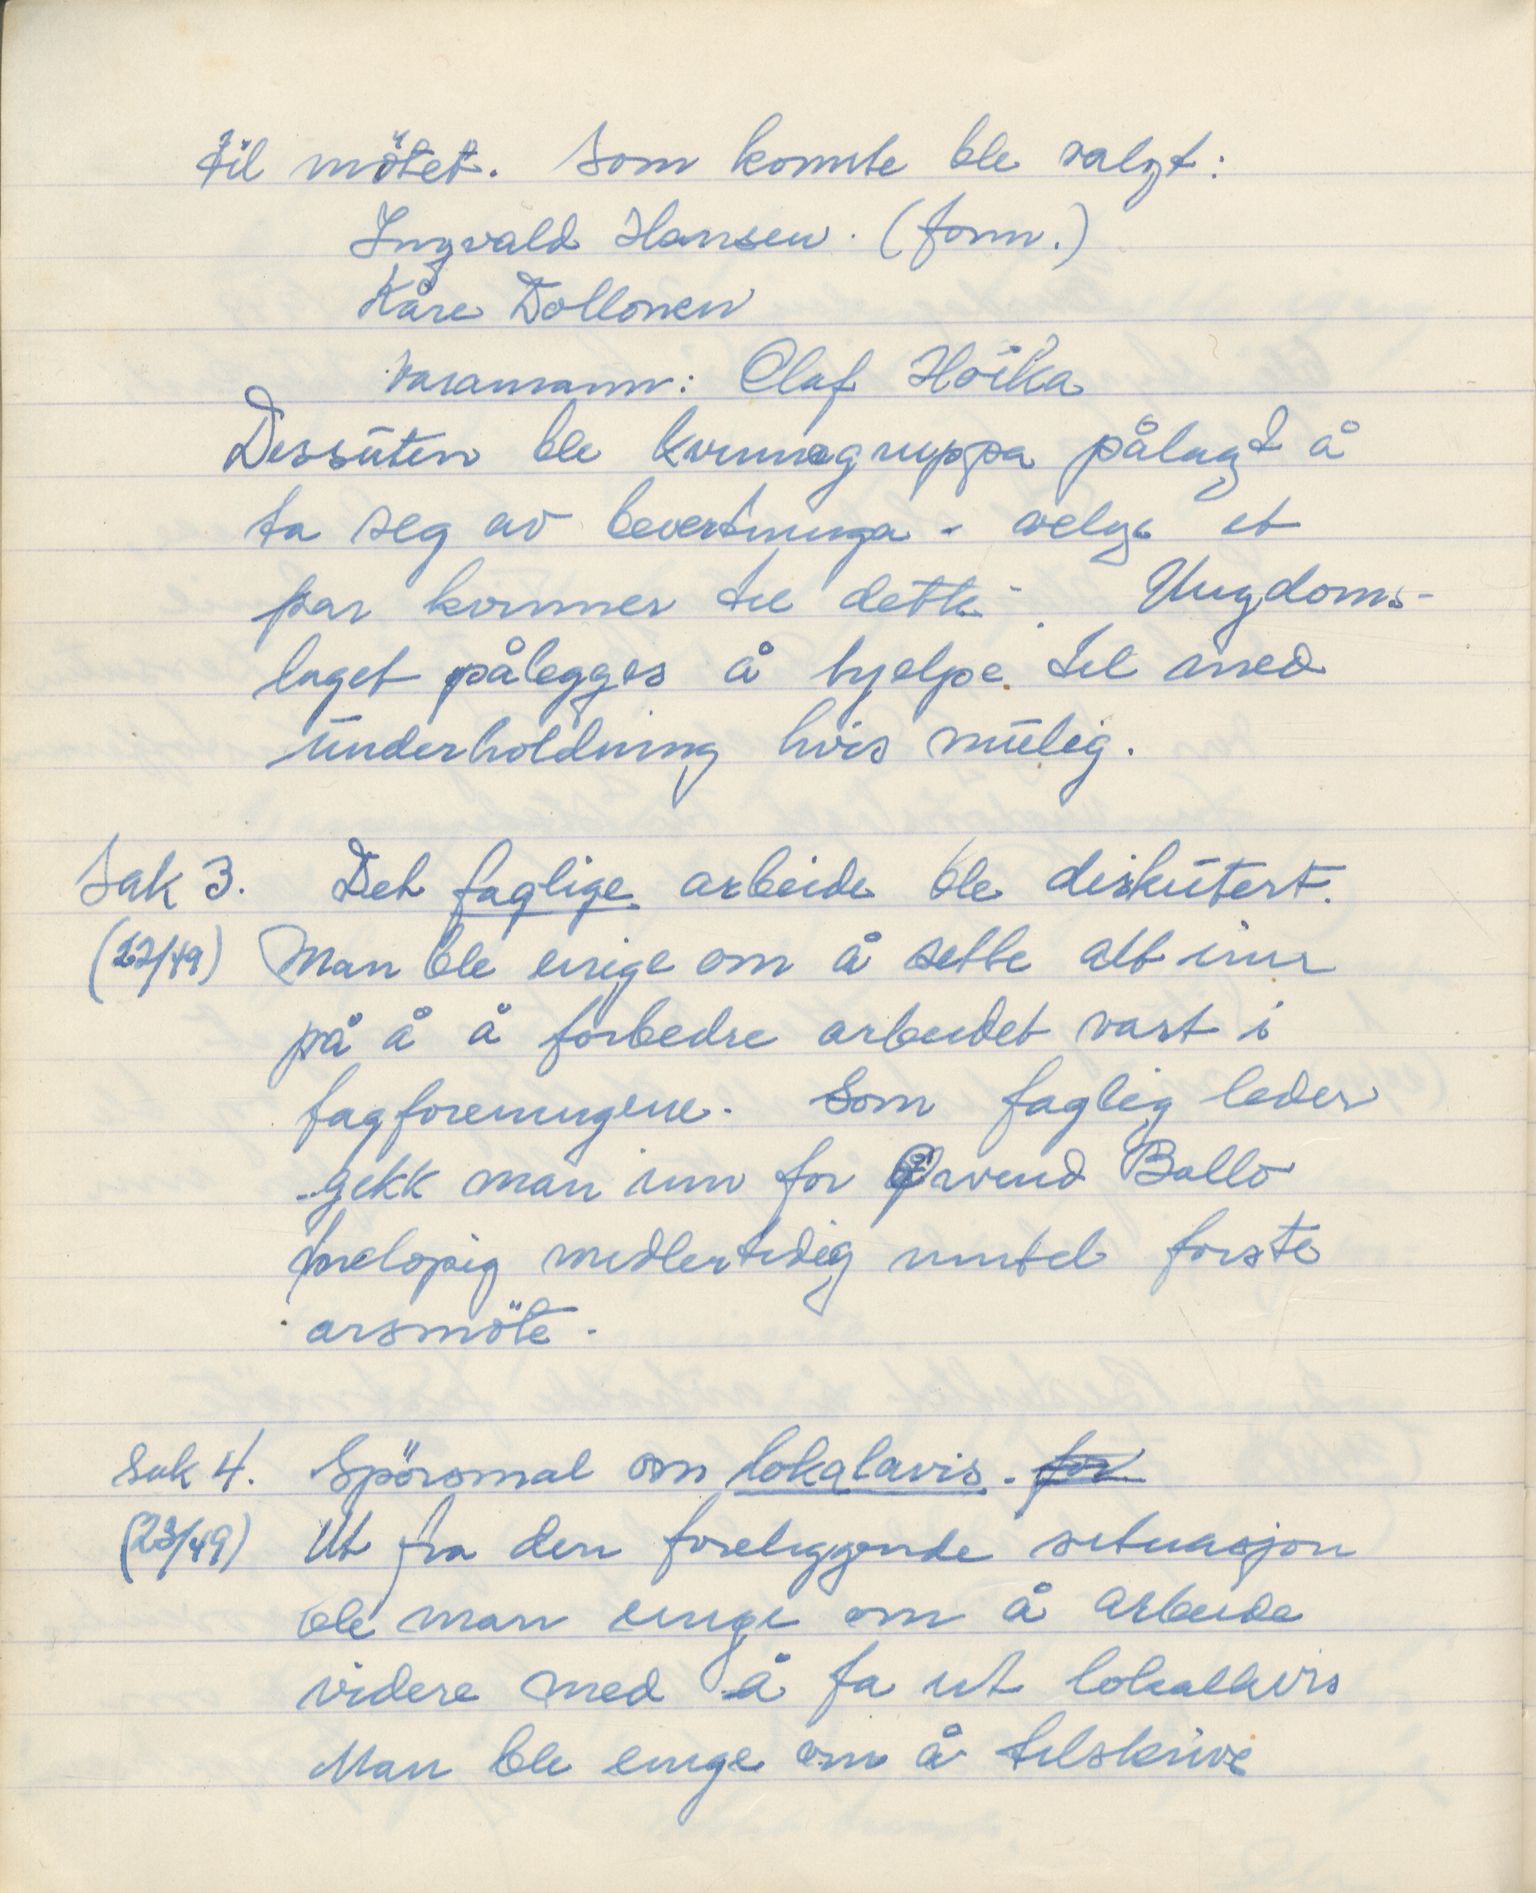 til mötet. Som komite ble valgt:
Ingvald Hansen. (form.)
Kåre Dollonen
varamann: Olaf Höika
Dessuten ble kvinnegruppa pålagt å
ta seg av bevertninga - velge et
par kvinner til dette -. Ungdoms-
laget pålegges å hjelpe til med
underholdning hvis mulig.
Sak 3. Det faglige arbeide ble diskutert.
(22/49) Man ble enige om å sette alt inn
på å å forbedre arbeidet vart i
fagforeningene. Som faglig leder
gekk man inn for Ballo
medlertidig inntil forste
arsmöte.
Sak 4. Spörsmal om lokalavis. for
(23/49) Ut fra den foreliggende situasjon
ble man enige om å arbeide
videre med å fa ut lokalavis
Man ble enige om å tilskrive